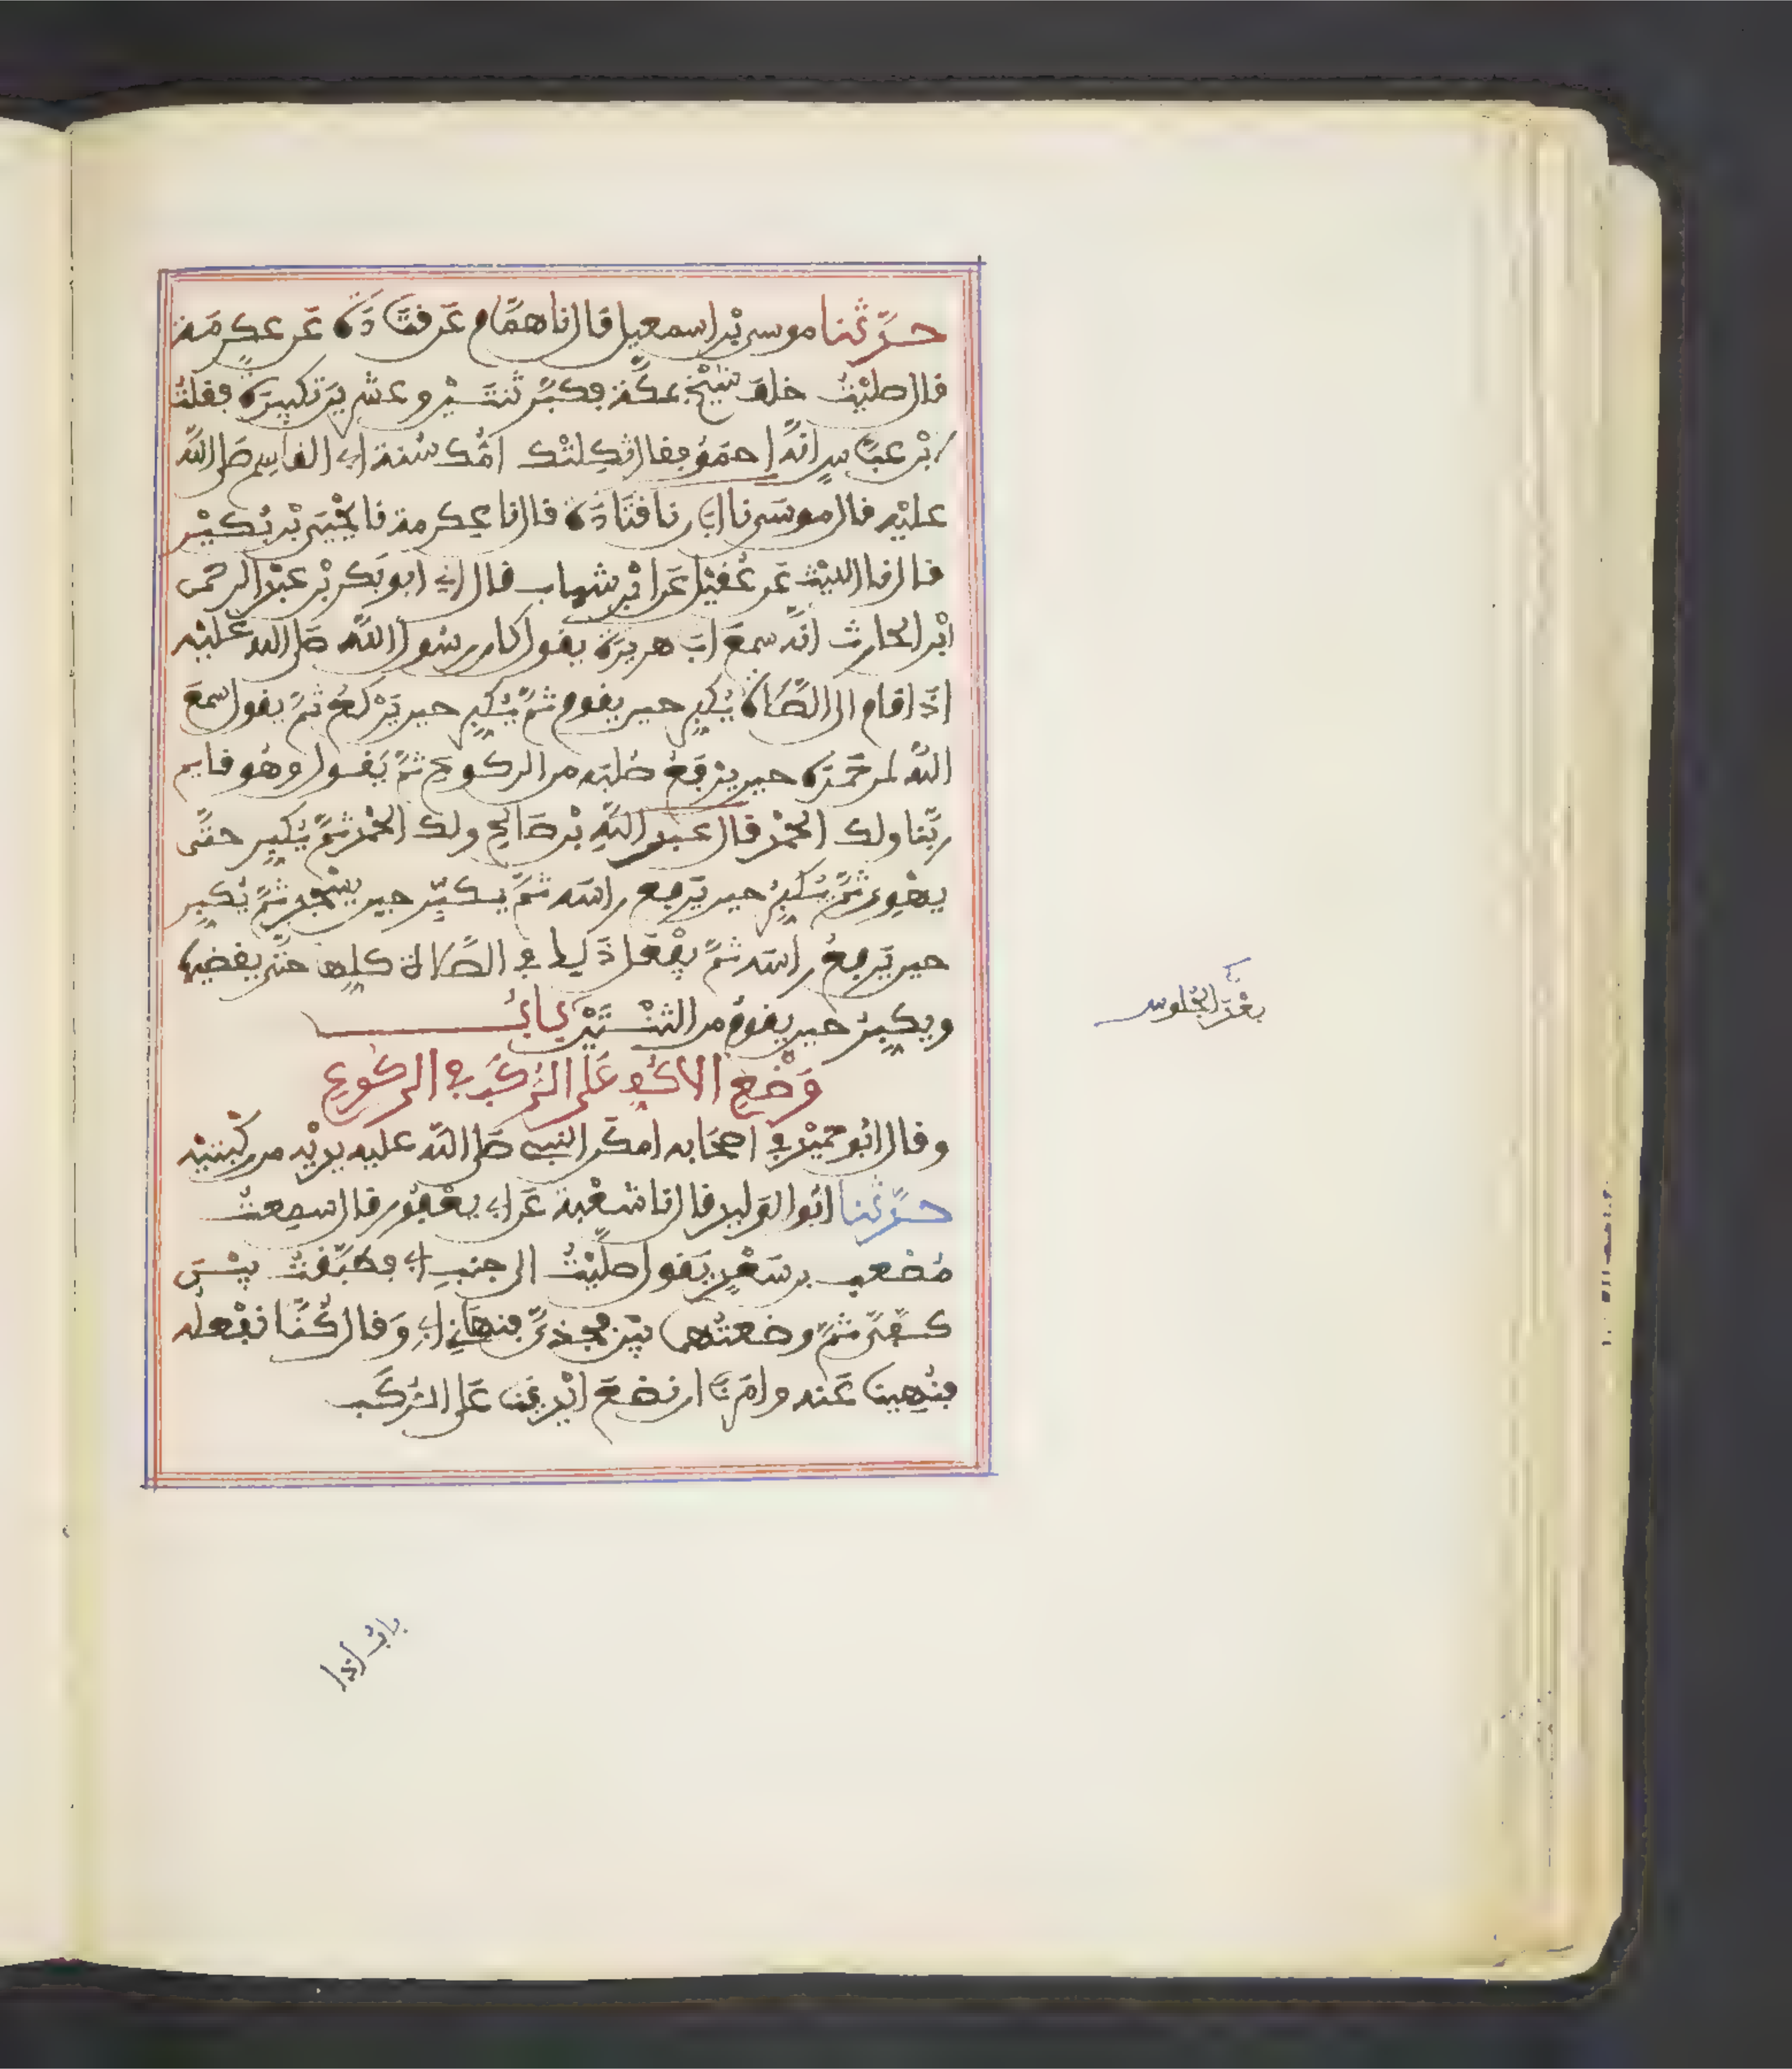 حدثنا موسى بن اسمعيل قال نا همام عن قتادة عن عكرمة
قال صليت خلف شيخ بمكة فكبر ثنتين وعشرين تكبيرة فقلت
لابن عباس انه احمق فقال ثكلتك امك سنة ابي القاسم صلى الله
عليه قال موسى نا ابان نا قتادة قال نا عكرمة نا يحيى بن بكير
قال نا الليث عن عقيل عن ابن شهاب قال اني ابو بكر بن عبد الرحمن
ابن الحارث انه سمع ابا هريرة يقول كان رسول الله صلى الله عليه
اذا قام الى الصلاة يكبر حين يقوم ثم يكبر حين يركع ثم يقول سمع
الله لمن حمده حين يرفع صلبه من الركوع ثم يقول وهو قايم
ربنا ولك الحمد قال عبد الله بن صالح ولك الحمد ثم يكبر حتى
يهوي ثم يكبر حين يرفع راسه ثم يكبر حين يسجد ثم يكبر
حين يرفع راسه ثم يفعل ذلك في الصلاة كلها حتى يقضيها
ويكبر حين يقوم من الثنتين باب
بعد الجلوس
وضع الاكف على الركب في الركوع
وقال ابو حميد في اصحابه امكن النبي صلى الله عليه يديه من ركبتيه
حدثنا ابو الوليد قال نا شعبة عن ابي يعفور قال سمعت
مصعب بن سعد يقول صليت الى جنب ابي فطبقت بين
كفي ثم وضعتهما بين فخذي فنهاني ابي وقال كنا نفعله
فنهينا عنه وامرنا ان نضع ايدينا على الركب
باب اذا